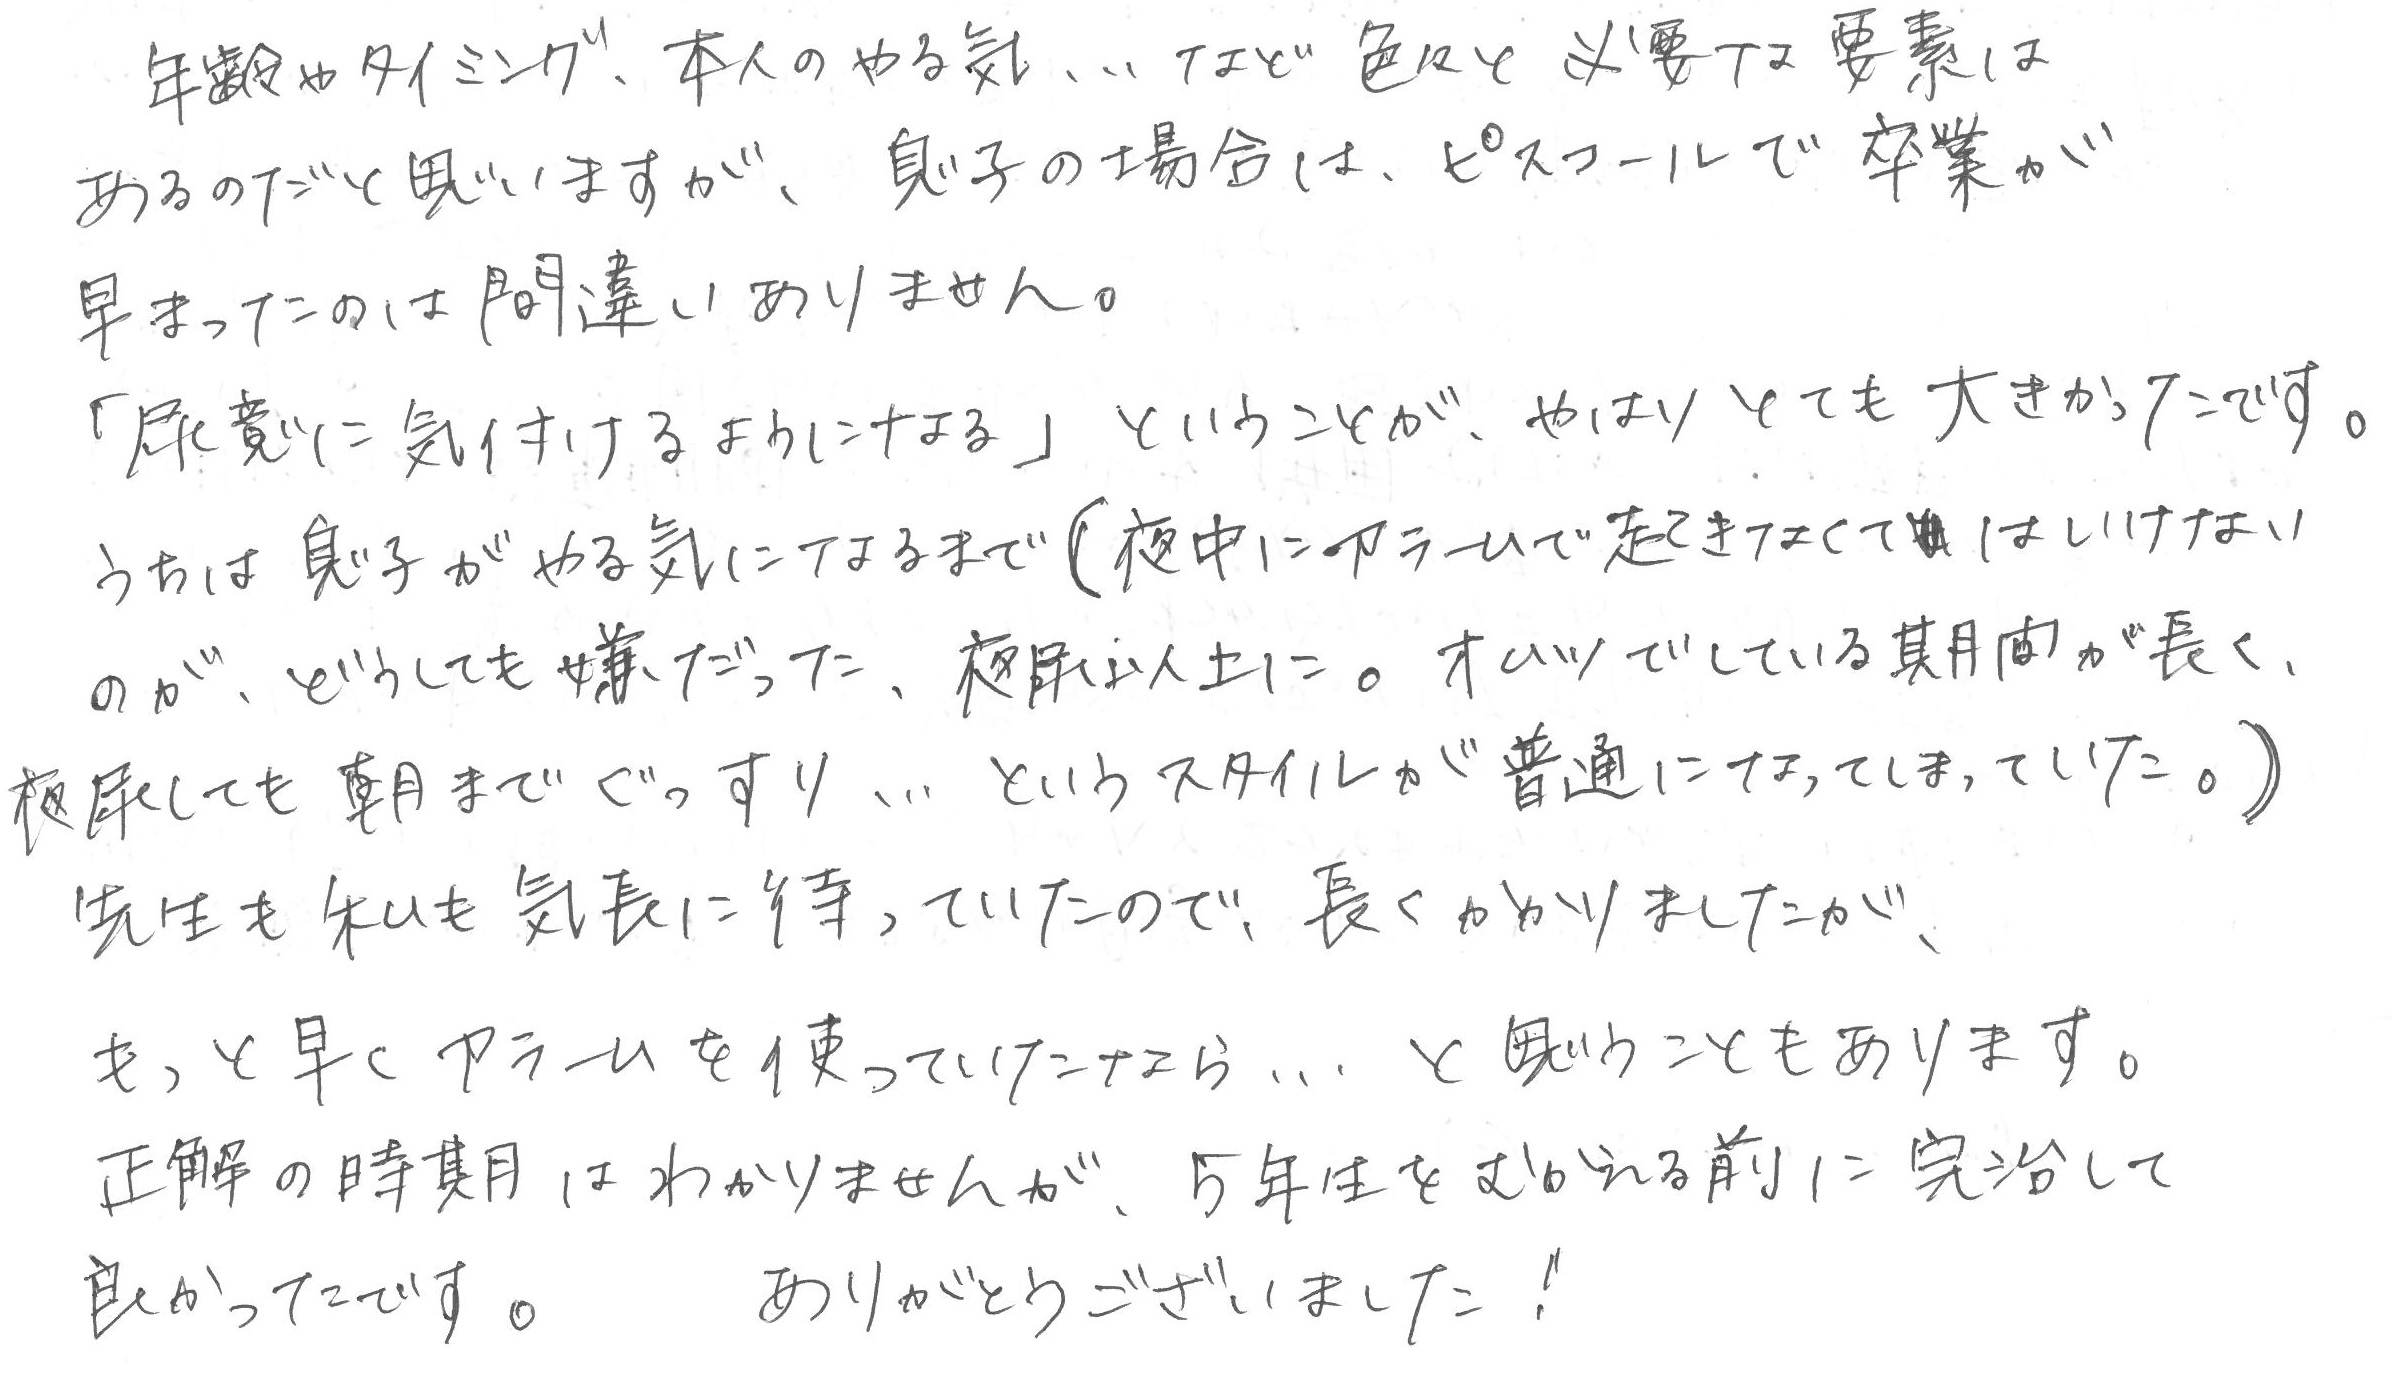 年齢やタイミング、本人のやる気、…など色々と必要な要素は
あるのだと思いますが、息子の場合は、ピスコールで卒業が
早まったのは間違いありません。
「尿意に気付けるようになる」ということが、やはりとても大きかったです。
うちは息子がやる気になるまで(夜中にアラームで起きなくてはいけない
のが、どうしても嫌だった、夜尿以上に。オムツでしている期間が長く、
夜尿しても朝までぐっすり…というスタイルが普通になってしまっていた。)
先生も私も気長に待っていたので、長くかかりましたが、
もっと早くアラームを使っていたなら…と思うこともあります。
正解の時期はわかりませんが、5年生をむかえる前に完治して
良かったです。 ありがとうございました!